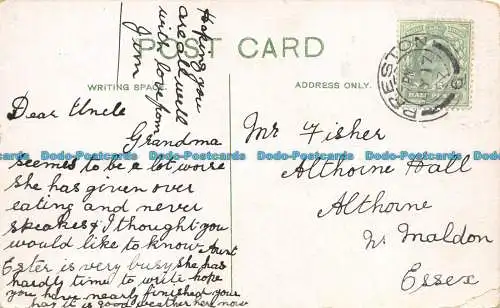 Hoping you
are all well
with love from
Jim
POST CARD
WRITING SPACE
ADDRESS ONLY.
Dear Uncle
Grandma
seems to be a lot worse
she has given over
eating and never
speakes & I thought you
would like to know Aunt
Ester is very busy she has
hardly time to write hope
you have nearly finished your
has it is good weather here now
Mr Fisher
Althorne Hall
Althorne
Nr Maldon
Essex
PRESTON
Dodo-Postcards Dodo-Postcards Dodo-Postcards Dodo-Postcards Dodo-Postcards